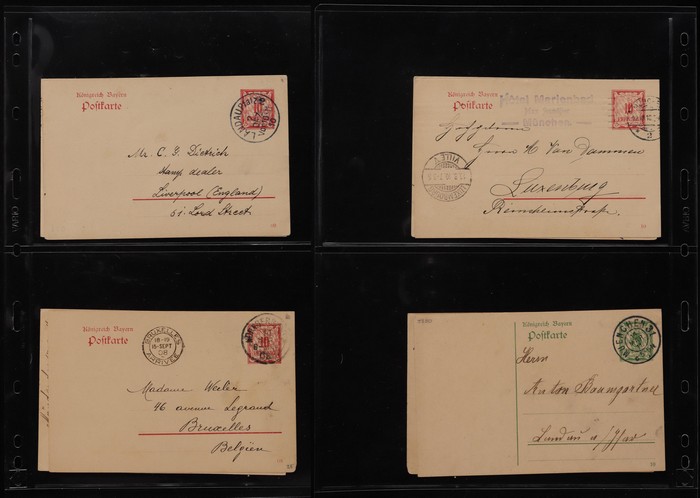 Königreich Bayern
Postkarte
10
LANDAU
Mr. C. G. Dietrich
Stamp dealer
Liverpool (England)
51. Lord Street
Königreich Bayern
Postkarte
10
Hôtel Marienbad
München.
Herrn H. Van Dammen
Luxemburg
VILLE
Königreich Bayern
Postkarte
10
BRUXELLES
18-19
15-SEPT
08
ARRIVÉE
Madame Weiler
46 avenue Legrand
Bruxelles
Belgien
Königreich Bayern
Postkarte
MUENCHEN
Herrn
Anton Baumgartner
Landau a/Isar